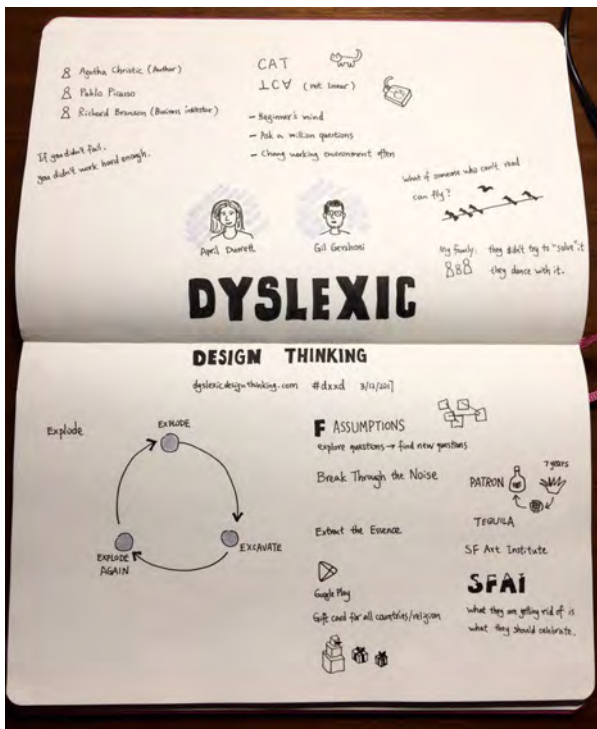 Agatha Christie (Author)
Pablo Picasso
Richard Branson (Business investor)
CAT
⊥C∀ (not linear)
- Beginner's mind
- Ask a million questions
- Chang working environment often
If you didn't fail.
you didn't work hard enough.
what if someone who can't read
can fly?
April Durrett
Gil Gershoni
My family: they didn't try to "solve" it
they dance with it.
DYSLEXIC
DESIGN THINKING
dyslexicdesignthinking.com #dxxd 3/12/2017
Explode
EXPLODE
EXCAVATE
EXPLODE
AGAIN
F ASSUMPTIONS
explore questions → find new questions
Break Through the Noise
Extract the Essence
Google Play
Gift card for all countries/religion
7 years
PATRON
TEQUILA
SF Art Institute
SFAI
what they are getting rid of is
what they should celebrate.